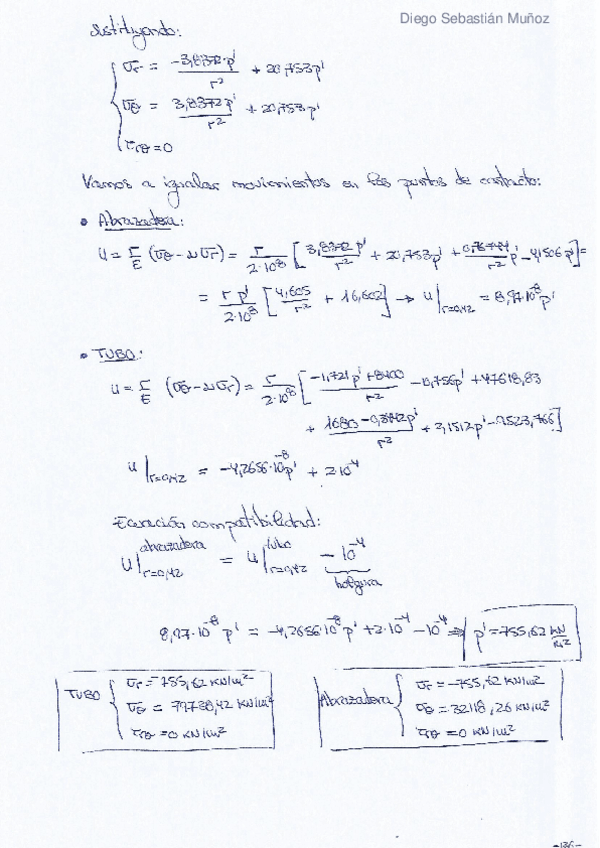 Diego Sebastián Muñoz
Sustituyendo:
σr = -3,8372p' / r² + 20,753p'
σθ = 3,8372p' / r² + 20,753p'
τrθ = 0
Vamos a igualar movimientos en los puntos de contacto:
• Abrazadera:
u = r/E (σθ - νσr) = r/2·10⁸ [3,8372p'/r² + 20,753p' + 0,76744p'/r² - 4,1506p'] =
= r p'/2·10⁸ [4,605/r² + 16,602] → u|r=0,42 = 8,97·10⁻⁸p'
• TUBO:
u = r/E (σθ - νσr) = r/2·10⁸ [-1,721p' + 8400 / r² - 10,756p' + 47618,83
+ 1680 - 0,3442p' / r² + 2,1512p' - 9523,766]
u|r=0,42 = -4,2656·10⁻⁸p' + 2·10⁻⁴
Ecuación compatibilidad:
u|r=0,42 abrazadera = u|r=0,42 tubo - 10⁻⁴
holgura
8,97·10⁻⁸p' = -4,2656·10⁻⁸p' + 2·10⁻⁴ - 10⁻⁴ ⇒ p' = 755,62 kN/m²
TUBO σr = 755,62 KN/m²
σθ = 79728,42 KN/m²
τrθ = 0 KN/m²
Abrazadera σr = -755,62 KN/m²
σθ = 32118,26 KN/m²
τrθ = 0 KN/m²